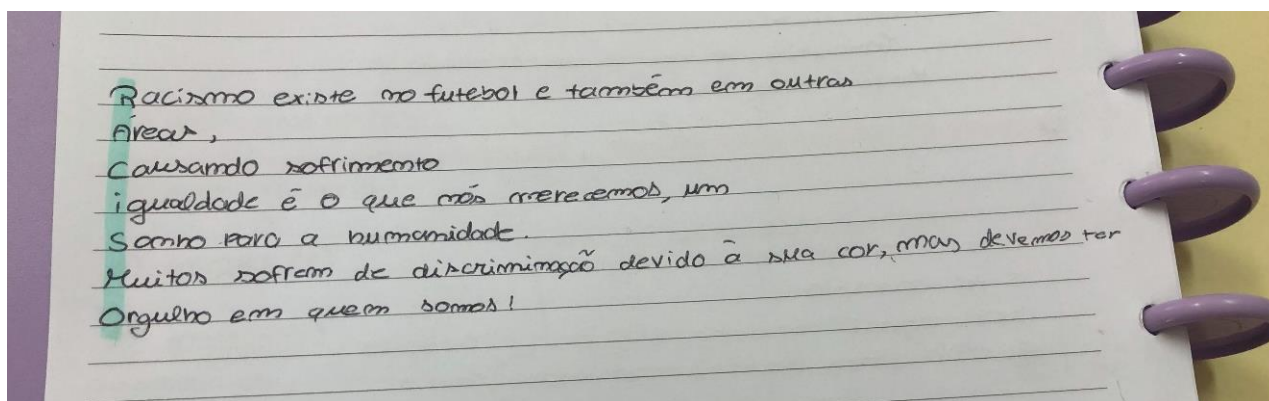 Racismo existe no futebol e também em outras
Áreas,
Causando sofrimento
igualdade é o que nós merecemos, um
Sonho para a humanidade.
Muitos sofrem de discriminação devido à sua cor, mas devemos ter
Orgulho em quem somos!